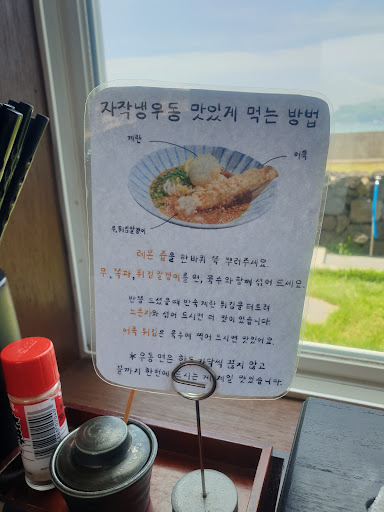 자작냉우동 맛있게 먹는 방법
계란
어묵
무,튀김알갱이
레몬 즙을 한바퀴 쭉 뿌려주세요.
무, 쪽파, 튀김알갱이를 면, 육수와 함께 섞어 드세요.
반쯤 드셨을때 반숙계란 튀김을 터트려
노른자와 섞어 드시면 더 맛이 있습니다.
어묵 튀김은 육수에 찍어 드시면 맛있어요.
* 우동 면은 끊지 않고
끝까지 한번에 드시는 게 제일 맛있습니다.